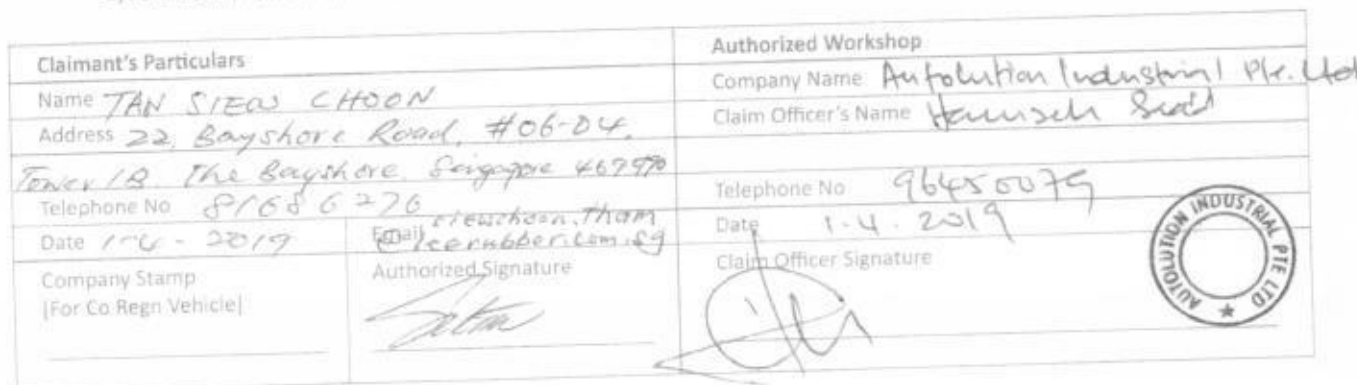 Claimant's Particulars
Name TAN SIEW CHOON
Address 22, Bayshore Road, #06-04,
Tower 1B, The Bayshore, Singapore 469970
Telephone No 81686276
Date 1-4-2019
Email siewchoon.tham
@leerubber.com.sg
Company Stamp
[For Co Regn Vehicle]
Authorized Signature
Authorized Workshop
Company Name Autolution Industrial Pte. Ltd
Claim Officer's Name
Telephone No 96450079
Date 1.4.2019
Claim Officer Signature
AUTOLUTION INDUSTRIAL PTE LTD